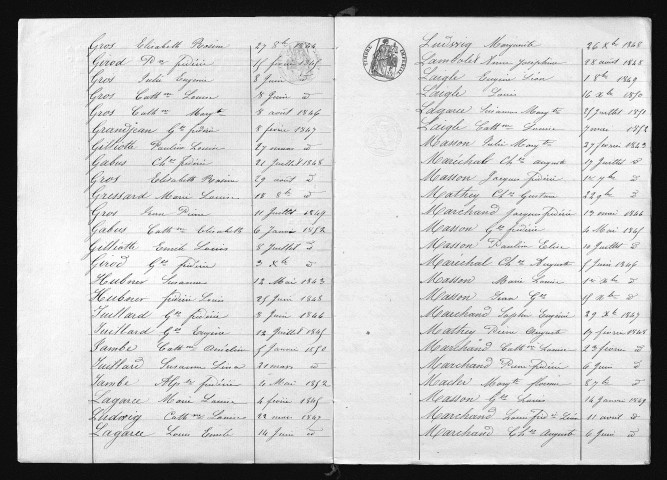 Gros Elisabeth Rosine 27 8bre 1844
Girod Pre frédéric 15 février 1845
Gros Julie Eugénie 8 Juin d
Gros Cathne Louise 8 Juin d
Gros Cathne Margte 8 août 1846
Grandjean Ge frédéric 8 février 1847
Gilliotte Pauline Louise 27 mars d
Gabus Chs frédéric 21 Juillet 1848
Gros Elisabeth Rosine 29 août d
Gressard Marie Louise 18 8bre d
Gros Jean Pierre 11 Juillet 1849
Gabus Cathne Elisabeth 6 Janvier 1852
Gilliotte Emile Louis 8 Juillet d
Girod Ge frédéric 3 Xbre d
Hubner Suzanne 12 Mai 1843
Hubner frédéric Louis 25 Juin 1843
Juillard Ge frédéric 8 Juin 1846
Juillard Ge Eugène 12 Juillet 1845
Jambe Cathne Amélie 5 Janvier 1850
Juillard Susanne Lina 21 mars d
Jambe Alp. frédéric 4 Mai 1852
Lagarce Marie Louise 4 février 1845
Ludwig Cathne Louise 22 mars 1847
Lagarce Louis Emile 14 Juin d
Ludwig Marguerite 26 Xbre 1848
Lambolet Anne Joséphine 28 août 1848
Laigle Eugène Léon 1 8bre 1849
Laigle Louis 16 Xbre 1850
Lagarce Susanne Margte 25 Juillet 1851
Laigle Cathne Louise 7 mars 1852
Masson Julie Margte 27 février 1843
Maréchal Chs Auguste 17 Juillet d
Masson Jacques frédéric 14 7bre d
Mathey Chs Gustave 22 9bre d
Marchand Jacques frédéric 17 mai 1844
Masson Ge frédéric 4 Mai 1845
Masson Pauline Elise 10 Juillet d
Maréchal Chs Auguste 5 Juin 1846
Masson Marie Louise 12 Xbre d
Masson Jean Ge 15 Xbre d
Marchand Sophie Eugénie 29 Xbre 1847
Mathey Pierre Auguste 19 février 1848
Marchand Cathne Louise 23 février d
Marchand Pierre frédéric 6 Juin d
Masler Margte florine 8 7bre d
Masson Ge Louis 14 Janvier 1849
Marchand Louis Fréd Léon 11 août d
Marchand Chs Auguste 6 Juin d